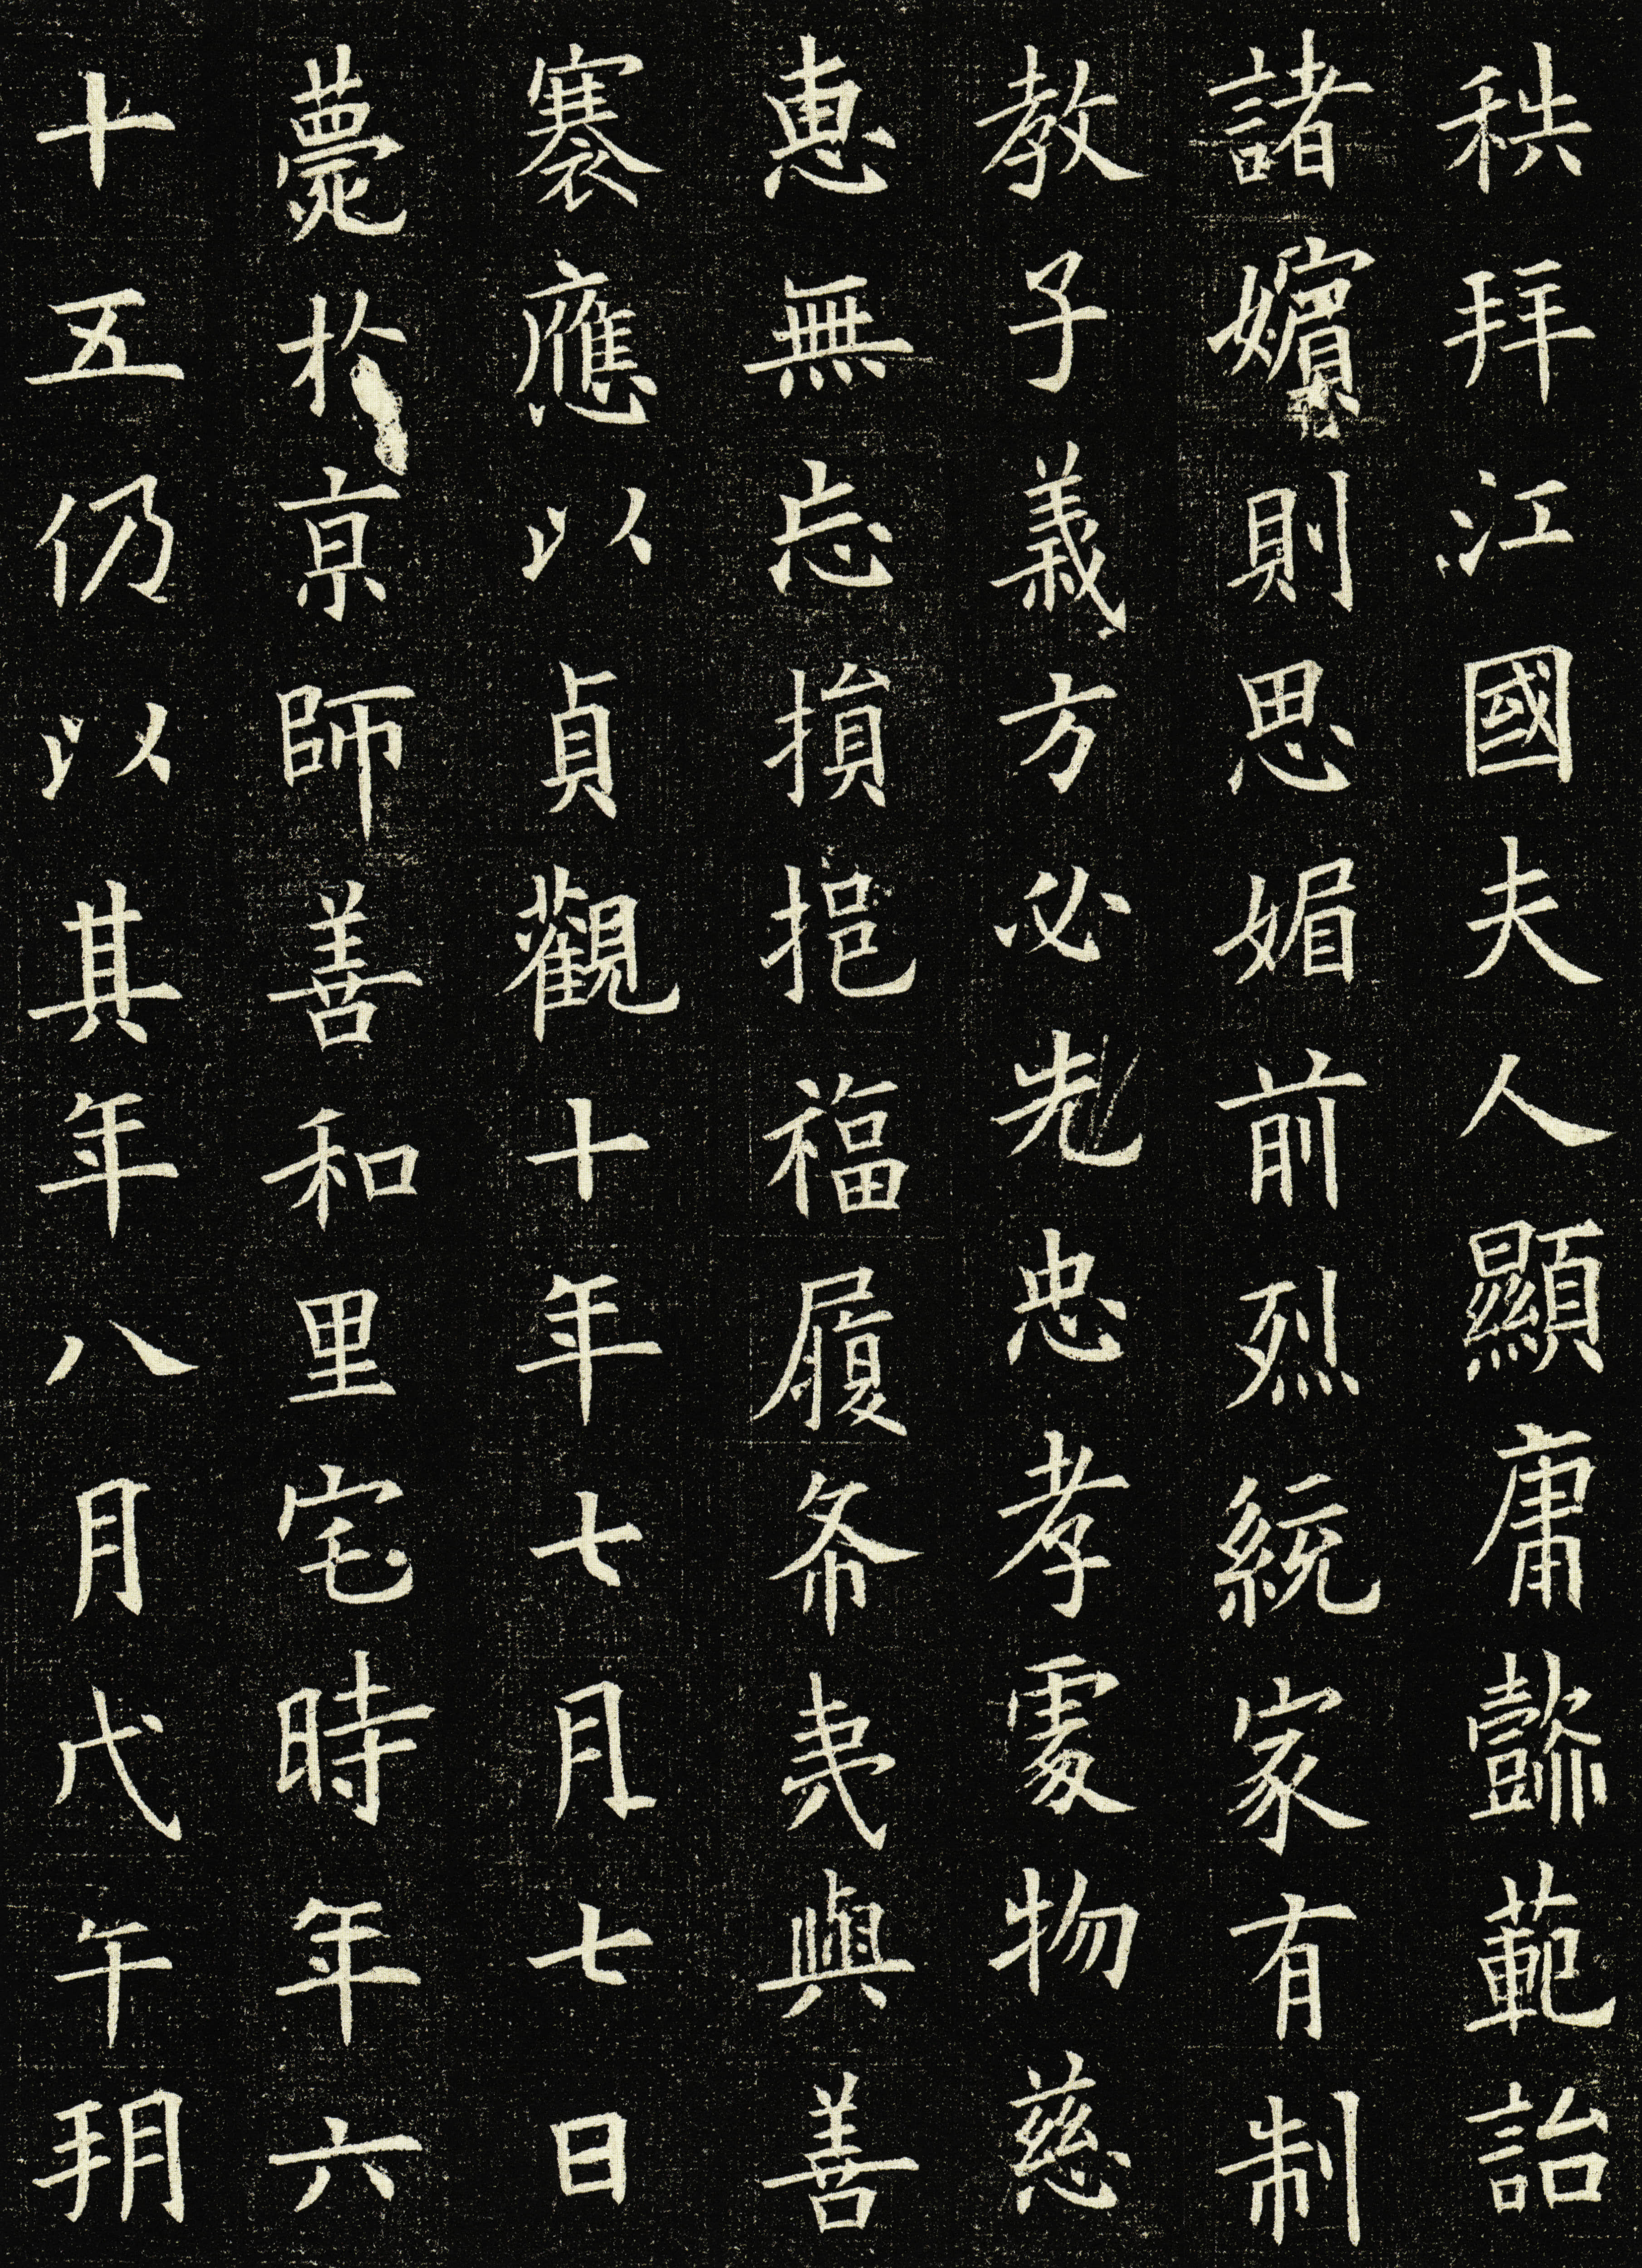 秩拜江國夫人顯庸懿範詒
諸嬪則思媚前烈統家有制
教子義方必先忠孝處物慈
惠無忘損挹福履希夷與善
褰應以貞觀十年七月七日
薨於亰師善和里宅時年六
十五仍以其年八月戊午朔